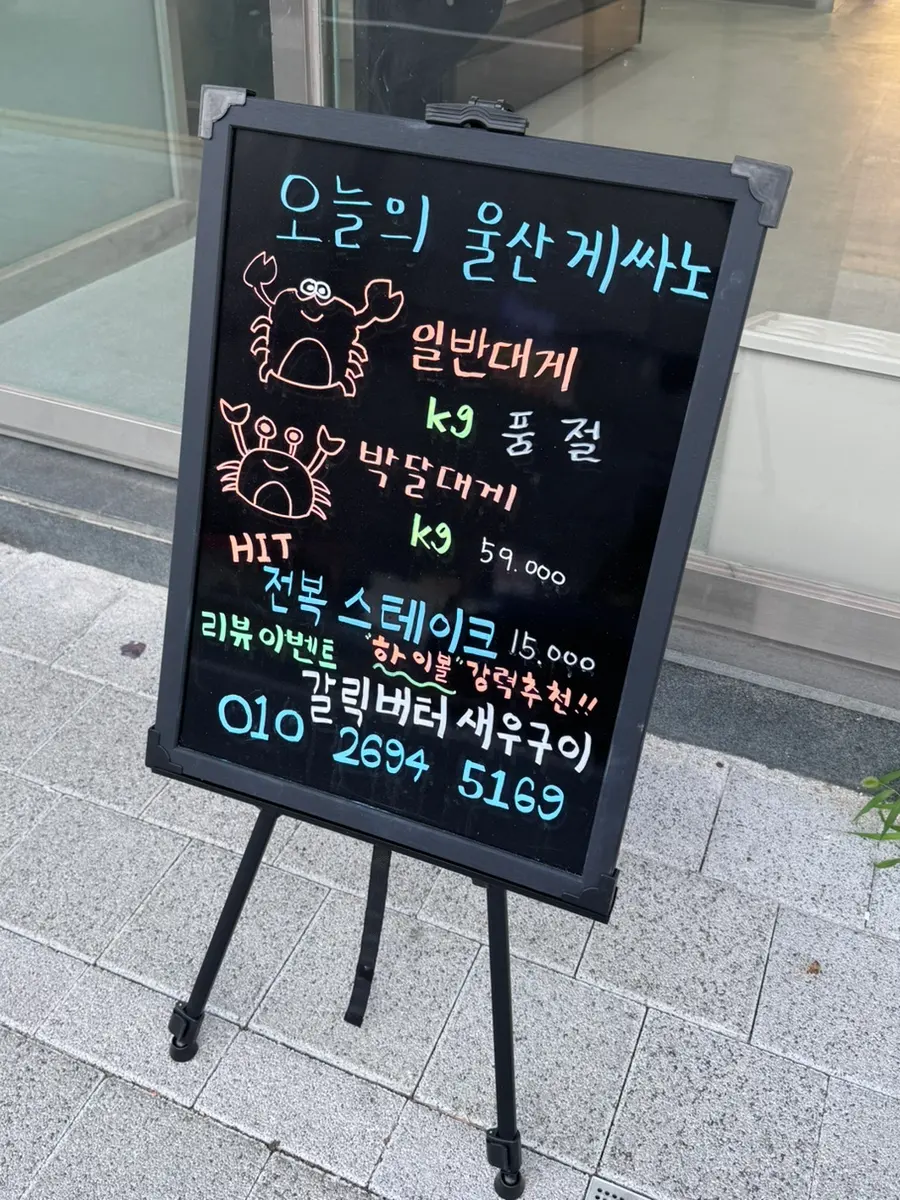 오늘의 울산게싸노
일반대게
kg 품절
박달대게
kg 59.000
HIT
전복 스테이크 15.000
리뷰이벤트 "하이볼" 강력추천!!
갈릭버터새우구이
010 2694 5169